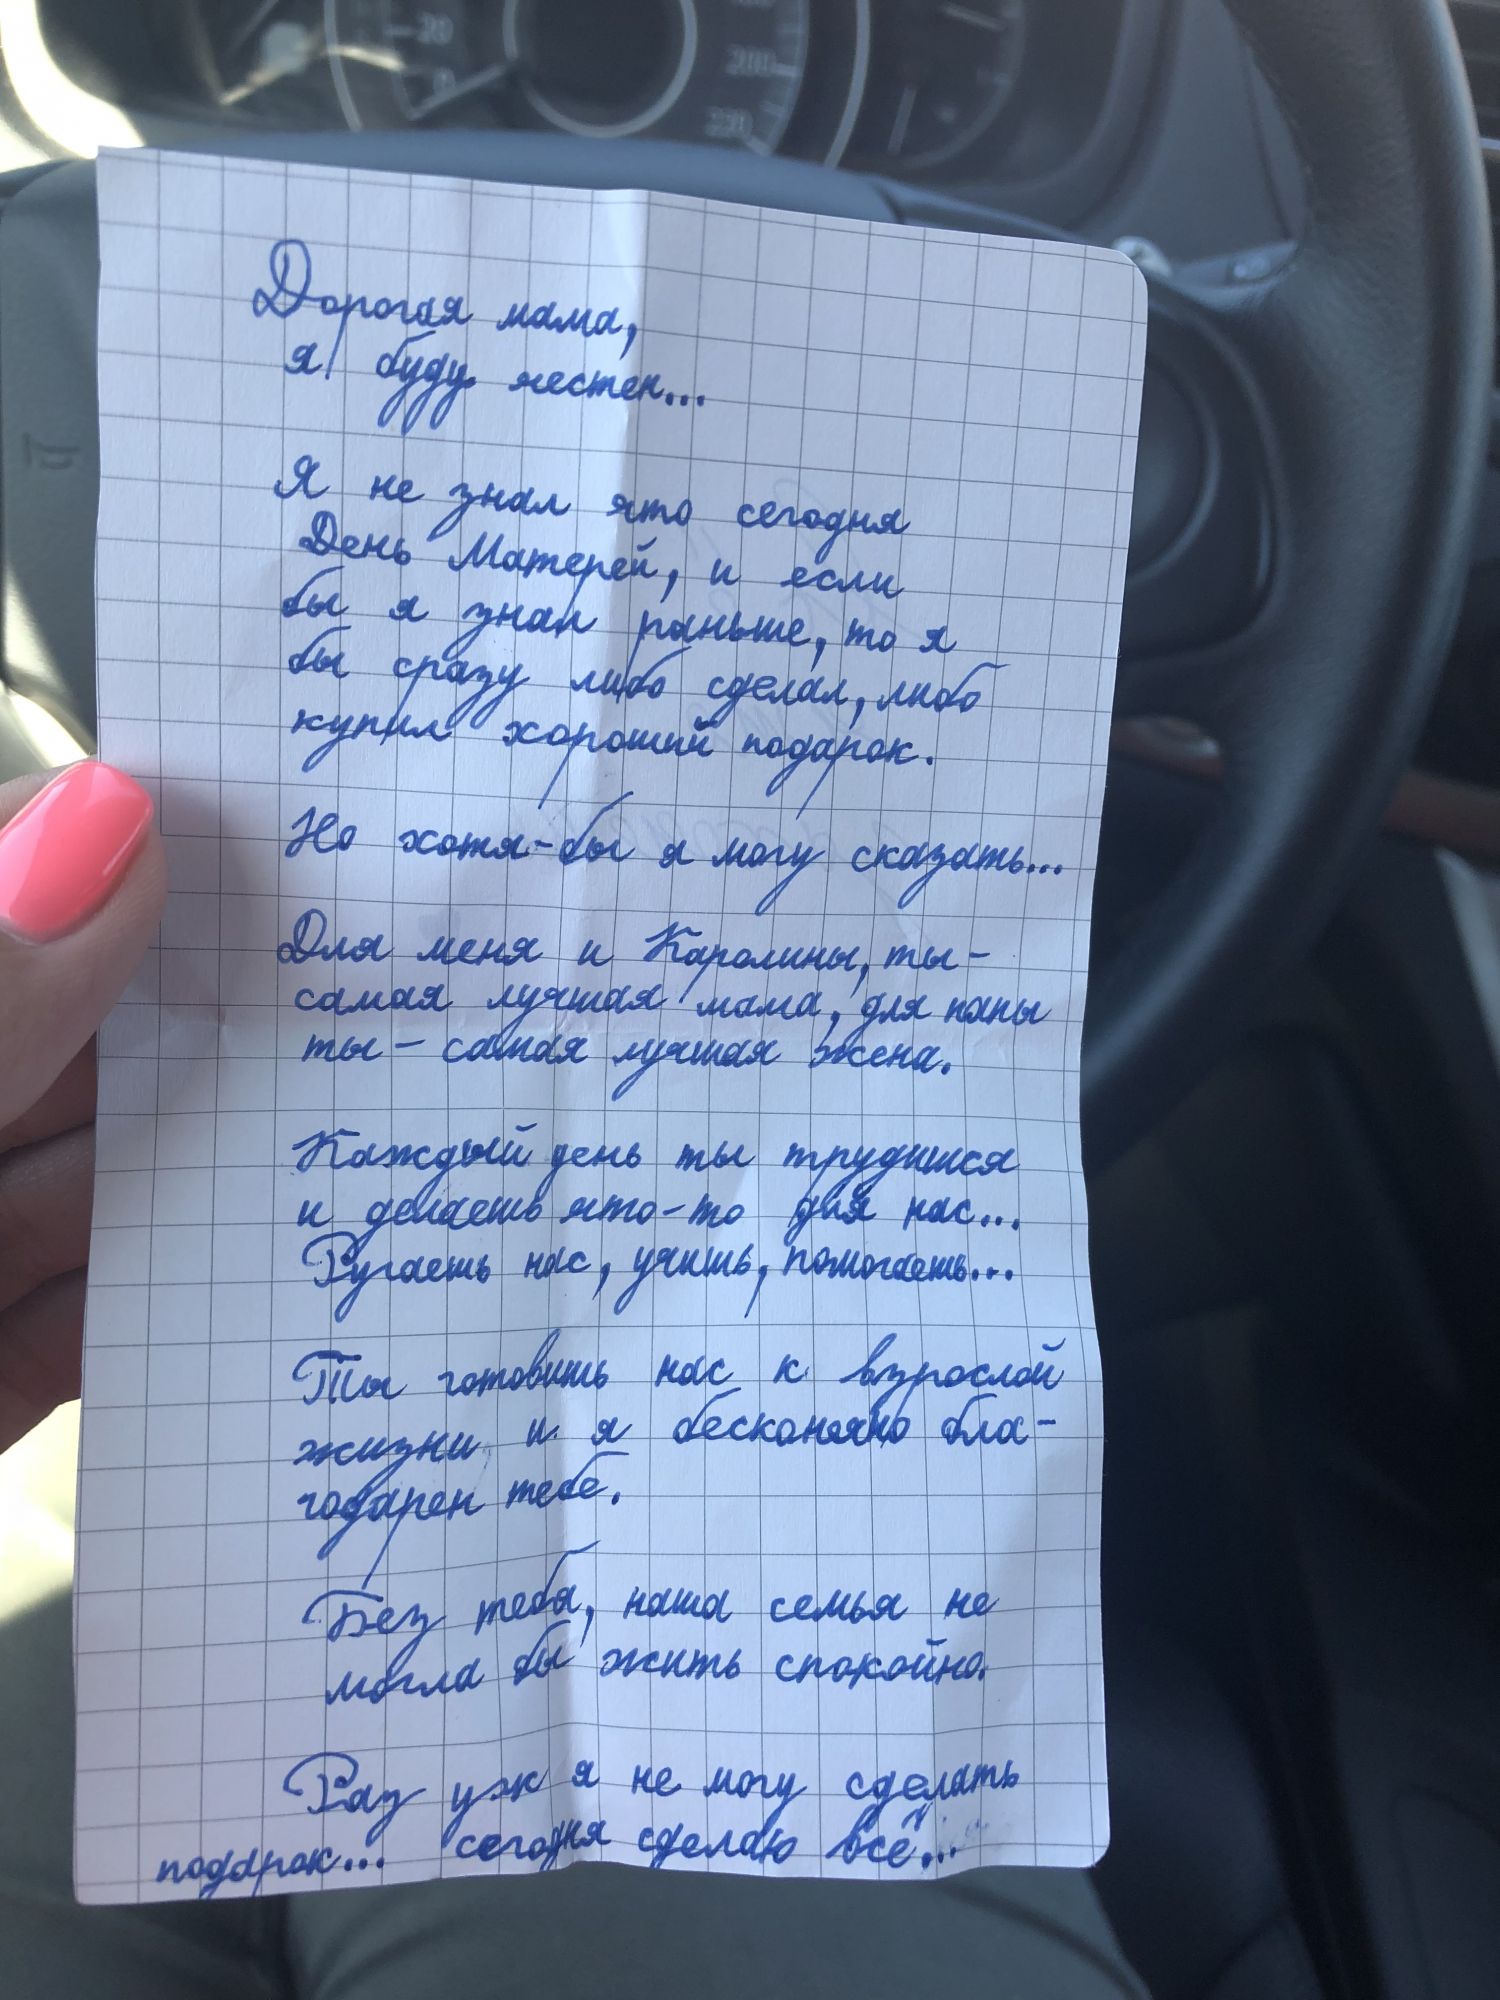 20
0
200
220
Дорогая мама,
я буду честен...
Я не знал что сегодня
День Матерей, и если
бы я знал раньше, то я
бы сразу либо сделал, либо
купил хороший подарок.
Но хотя-бы я могу сказать...
Для меня и Каролины, ты-
самая лучшая мама, для папы
ты - самая лучшая жена.
Каждый день ты трудишся
и делаешь что-то для нас...
Ругаешь нас, учишь, помогаешь...
Ты готовишь нас к взрослой
жизни и я бесконечно бла-
годарен тебе.
Без тебя, наша семья не
могла бы жить спокойно.
Раз уж я не могу сделать
подарок... сегодня сделаю всё...